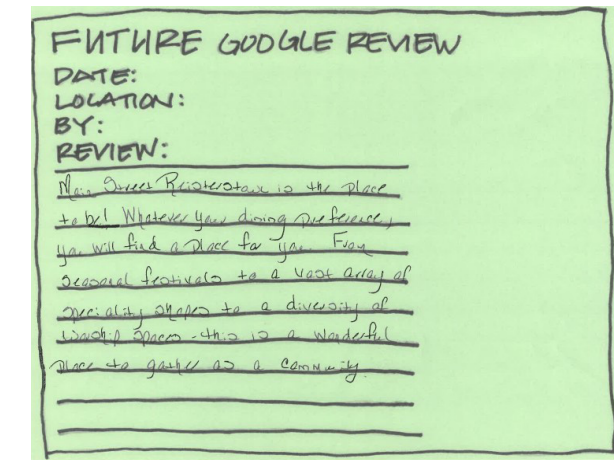 FUTURE GOOGLE REVIEW
DATE:
LOCATION:
BY:
REVIEW:
Main Street Reisterstown is the place
to be! Whatever your dining preference,
you will find a place for you. From
seasonal festivals to a vast array of
speciality shops to a diversity of
worship spaces - this is a wonderful
place to gather as a community.